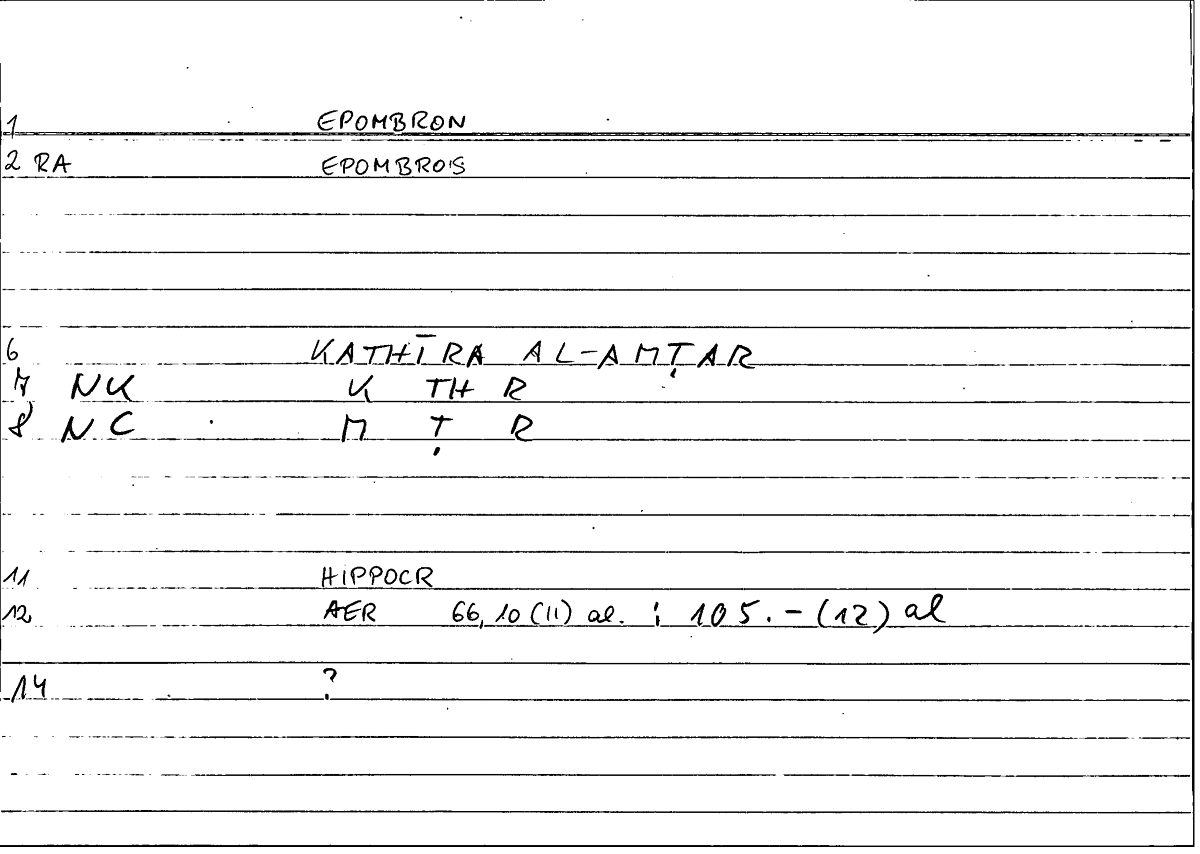 1 EPOMBRON
2 RA EPOMBROS
6 KATHĪRA AL-AMṬAR
7 NK K TH R
8 NC M Ṭ R
11 HIPPOCR
12 AER 66,10 (11) al. ; 105.-(12) al
14 ?